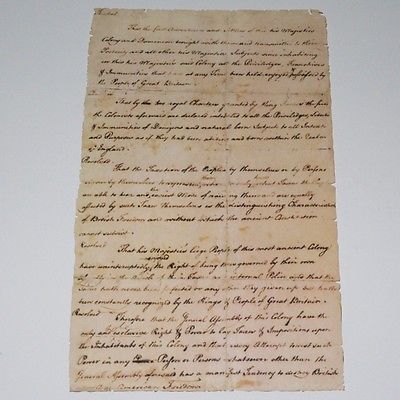 Resolved
That the first Adventurers and Settlers of this his Majesties
Colony and Dominion brought with them and transmitted to their
Posterity and all other his Majesties Subjects since inhabiting
in this his Majesties Colony all the Priviledges, Franchises
& Immunities that have at any Time been held, enjoyed, possessed by
the People of Great Britain
That by the two royal Charters granted by King James the first
the Colonists aforesaid are declared intitled to all the Priviledges, Liberties
& Immunities of Denizens and natural born Subjects to all Intents
and Purposes as if they had been abiding and born within the Realm
of England
Resolved
That the Taxation of the People by themselves or by Persons
chosen by themselves to represent
affected by such Taxes themselves is the distinguishing Characteristick
of British Freedom and without which the ancient Constitution
cannot subsist
Resolved
That his Majesties liege People of this most ancient Colony
have uninterruptedly the Right of being governed by their own
internal Police
have been constantly recognized by the Kings & People of Great Britain
Resolved
Therefore that the General Assembly of this Colony have the
only exclusive Right & Power to lay Taxes & Impositions upon
the Inhabitants of this Colony and that every Attempt to vest such
Power in any Person or Persons whatsoever other than the
General Assembly aforesaid has a manifest Tendency to destroy British
American Freedom